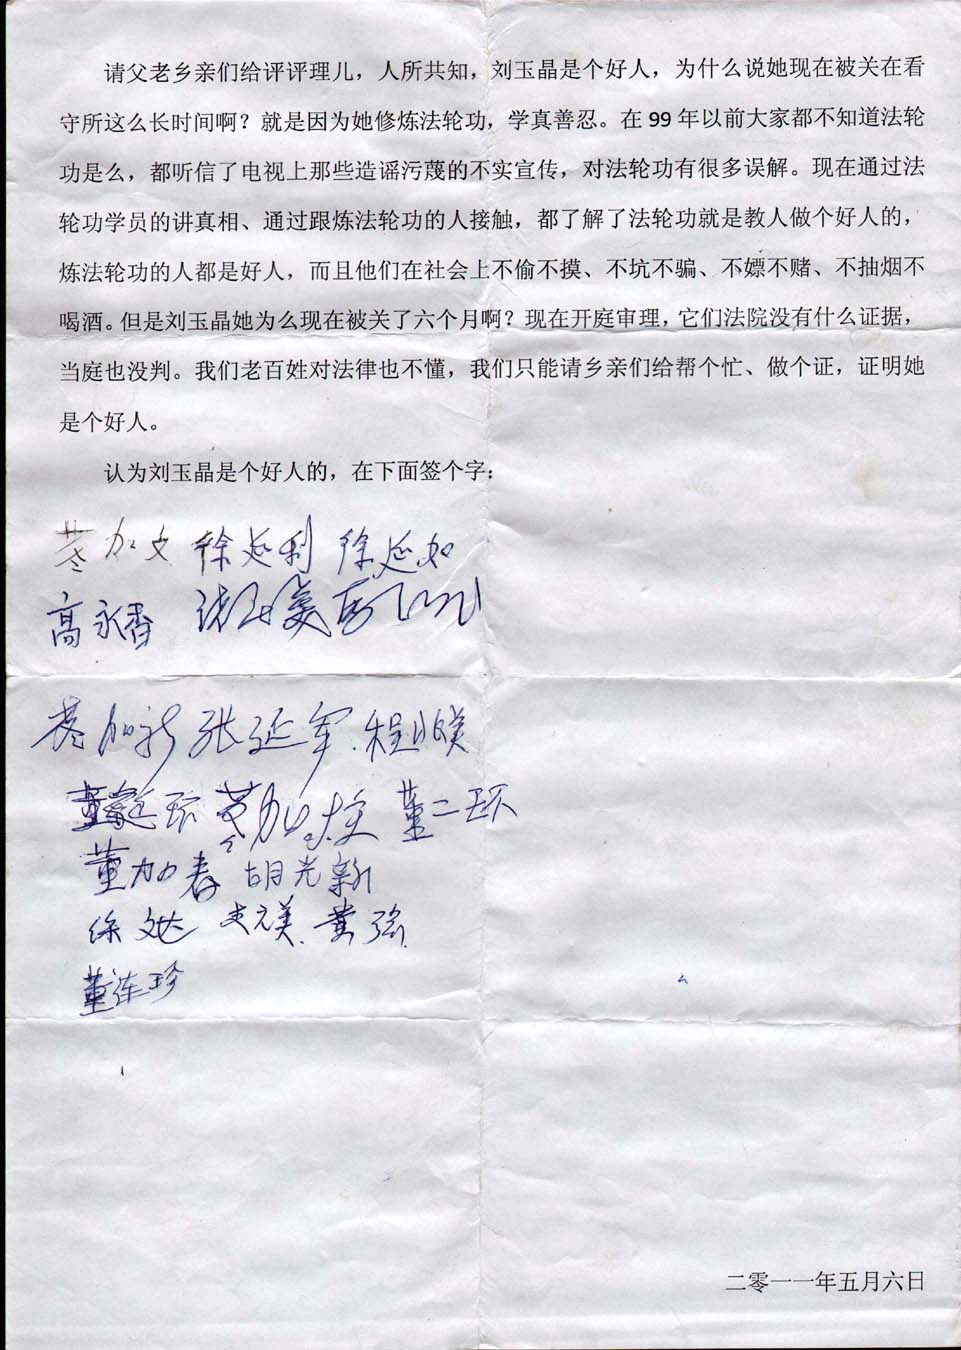 请父老乡亲们给评评理儿，人所共知，刘玉晶是个好人，为什么说她现在被关在看
守所这么长时间啊？就是因为她修炼法轮功，学真善忍。在 99 年以前大家都不知道法轮
功是么，都听信了电视上那些造谣污蔑的不实宣传，对法轮功有很多误解。现在通过法
轮功学员的讲真相、通过跟炼法轮功的人接触，都了解了法轮功就是教人做个好人的，
炼法轮功的人都是好人，而且他们在社会上不偷不摸、不坑不骗、不嫖不赌、不抽烟不
喝酒。但是刘玉晶她为么现在被关了六个月啊？现在开庭审理，它们法院没有什么证据，
当庭也没判。我们老百姓对法律也不懂，我们只能请乡亲们给帮个忙、做个证，证明她
是个好人。
认为刘玉晶是个好人的，在下面签个字：
加文 徐延利 徐延如
高永香
张延军
董二环
董加春 胡光新
徐文达 史元美
董连珍
二零一一年五月六日